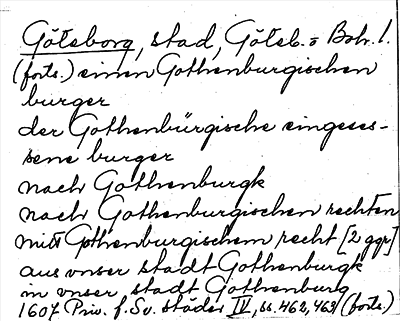 Göteborg, stad, Göteb. o Boh. l.
(forts.) einen Gothenburgischen
burger
der Gothenbürgische eingeses-
sene burger
nach Gothenburgk
nach Gothenburgischen rechten
mitt Gothenburgischem recht [2 ggr]
aus vnser stadt Gothenburgk
in vnser stadt Gothenburg
1607 Priv. f. Sv. städer IV, ss. 462, 463 (forts.)